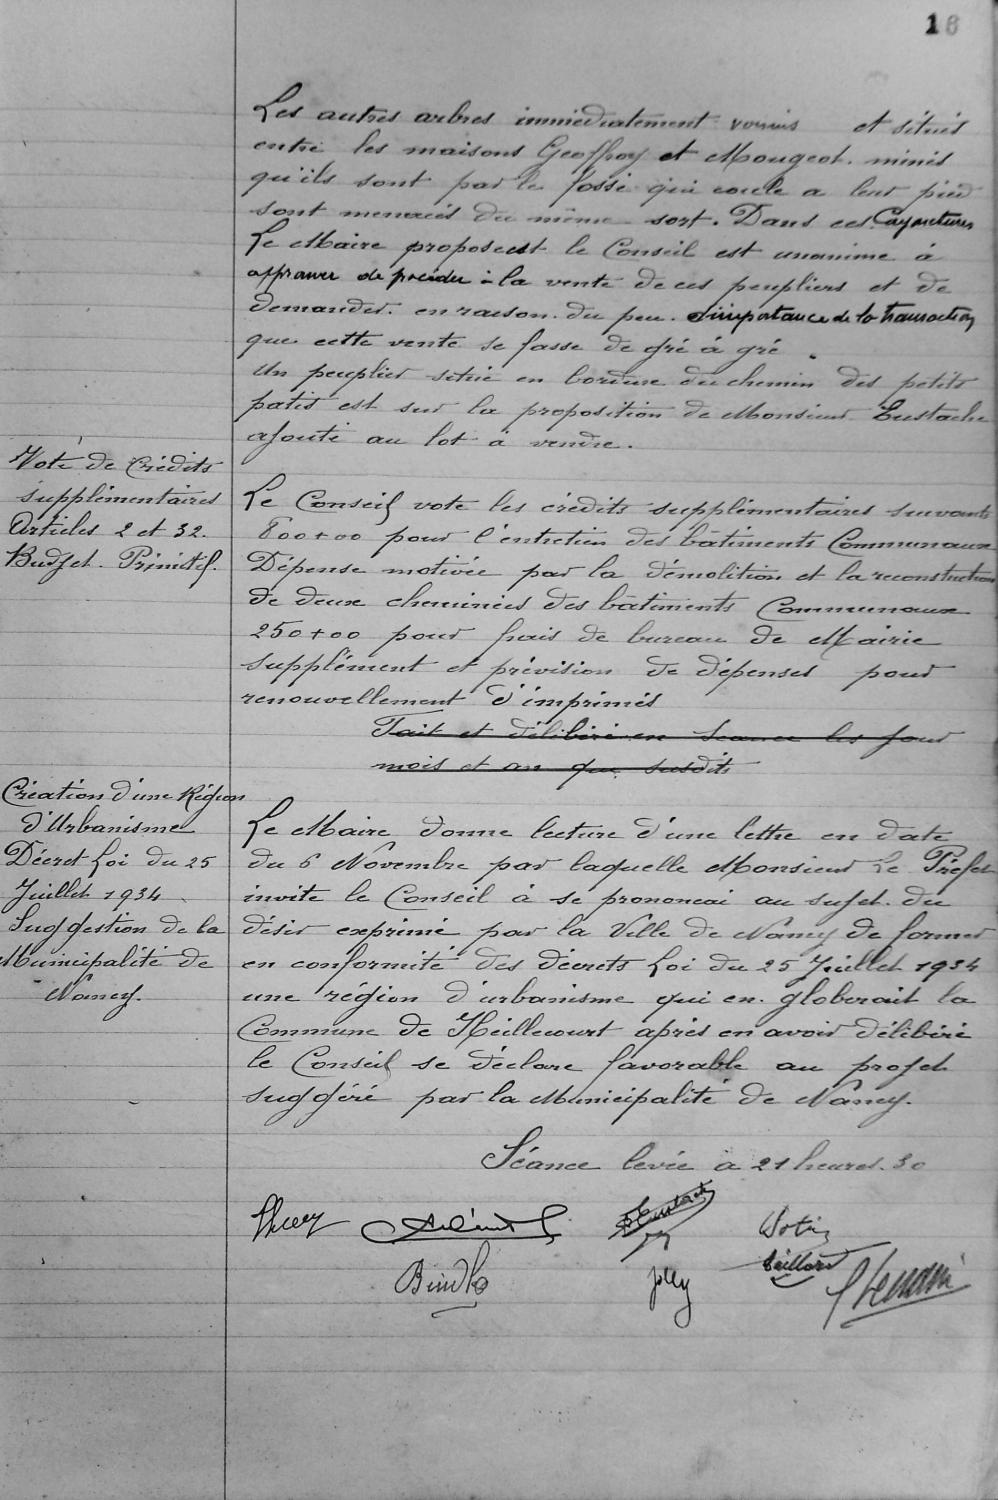 16
Les autres arbres immédiatement voisins et situés
entre les maisons Geoffroy et Mougeot. minés
qu'ils sont par le fossé qui coule a leur pied
sont menacés du même sort. Dans ces
Le Maire proposant le Conseil est unanime à
approuver de procéder à la vente de ces peupliers et de
demander. en raison. du peu. d'importance de la transaction
que cette vente se fasse de gré à gré.
Un peuplier situé en bordure du chemin des petits
patis est sur la proposition de Monsieur Eustache
ajouté au lot à vendre.
Vote de Crédits
supplémentaires
Articles 2 et 32.
Budget. Primitif.
Le Conseil vote les crédits supplémentaires suivants
800+00 pour l'entretien des bâtiments Communaux
Dépense motivée par la démolition et la reconstruction
de deux cheminées des bâtiments Communaux
250+00 pour frais de bureau de Mairie
supplément et prévision de dépenses pour
renouvellement d'imprimés
Fait et délibéré en Séance les jour
mois et an que susdits
Création d'une Région
d'Urbanisme
Décret Loi du 25
Juillet 1934
Suggestion de la
Municipalité de
Nancy.
Le Maire donne lecture d'une lettre en date
du 6 Novembre par laquelle Monsieur Le Préfet
invite le Conseil à se prononcer au sujet. du
désir exprimé par la Ville de Nancy de former
en conformité des décrets Loi du 25 Juillet 1934
une région d'urbanisme qui en. globerait la
Commune de Heillecourt après en avoir délibéré
le Conseil se déclare favorable au projet
suggéré par la Municipalité de Nancy.
Séance levée à 21 heures. 30
Eustache
Jolly